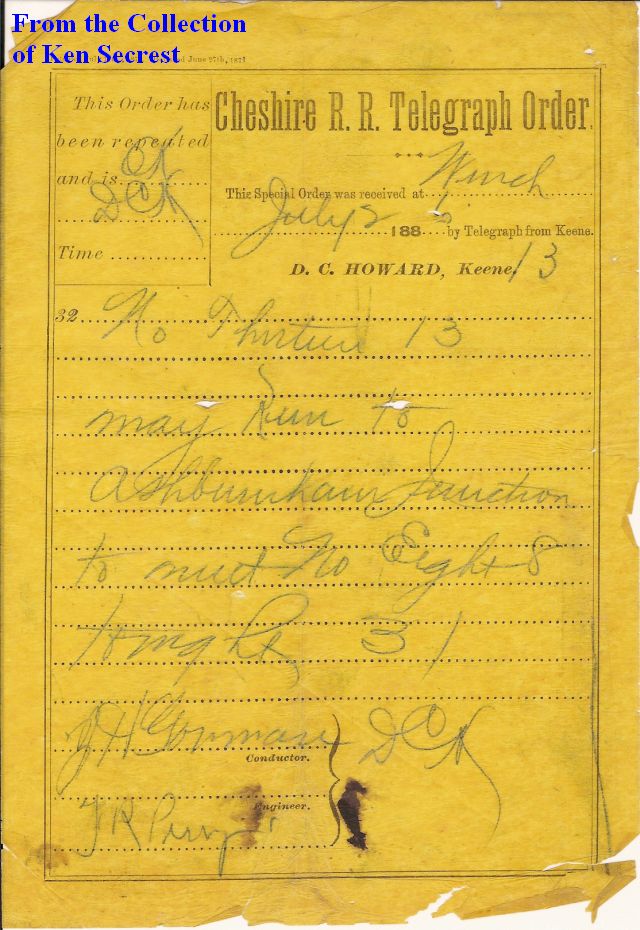 From the Collection
of Ken Secrest
June 27th, 187
This Order has
been repeated
and is OK
DCH
Time
Cheshire R. R. Telegraph Order.
This Special Order was received at Winch
July 2 188 by Telegraph from Keene.
D. C. HOWARD, Keene, 13
32 No Thirteen 13
may Run to
Ashburnham Junction
to meet No Eight 8
tonight 31
J H Gorman DCH
Conductor.
Engineer.